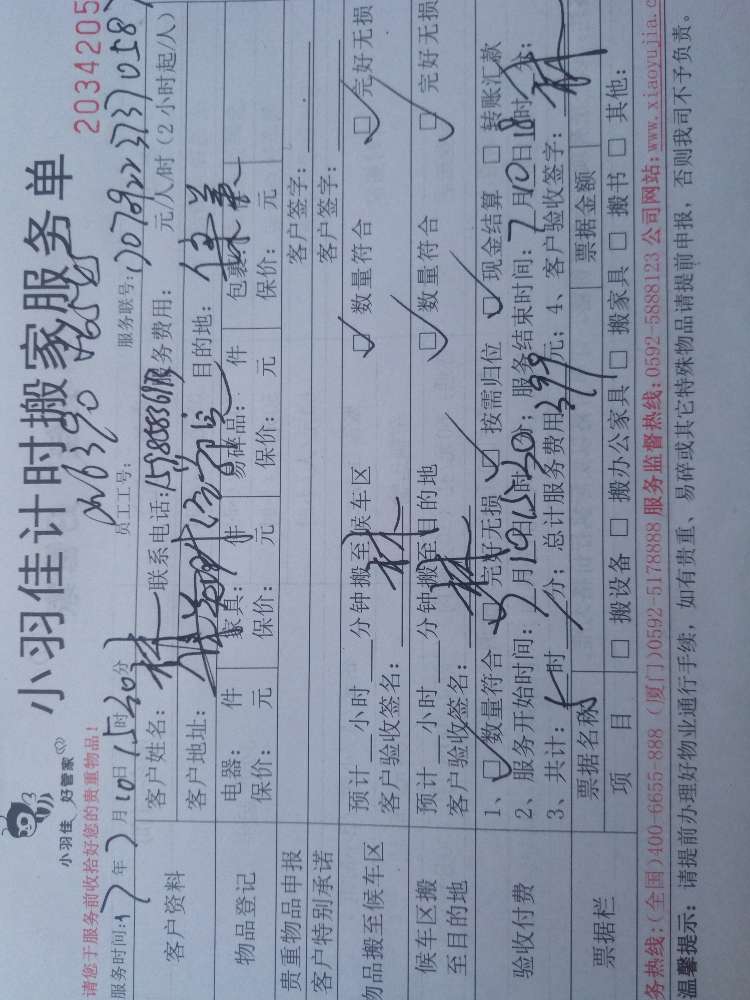 小羽佳 好管家
小羽佳计时搬家服务单
2034205
请您于服务前收拾好您的贵重物品!
服务时间:17年7月10日15时30分 员工工号: 服务联号:
客户资料 客户姓名:林 联系电话: 服务费用: 元/人/时(2小时起/人)
客户地址: 目的地:
物品登记 电器: 件 家具: 件 易碎品: 件 包裹: 件
保价: 元 保价: 元 保价: 元 保价: 元
贵重物品申报 客户签字:
客户特别承诺 客户签字:
物品搬至候车区 预计__小时__分钟搬至候车区 □ 数量符合 □ 完好无损
客户验收签名:林
候车区搬至目的地 预计__小时__分钟搬至目的地 □ 数量符合 □ 完好无损
客户验收签名:林
验收付费 1、□ 数量符合 □ 完好无损 □ 按需归位 □ 现金结算 □ 转账汇款
2、服务开始时间:7月10日15时30分;服务结束时间:7月10日18时 分;
3、共计: 时 分;总计服务费用399元;4、客户验收签字:林
票据栏 票据名称 票据金额
项目 □ 搬设备 □ 搬办公家具 □ 搬家具 □ 搬书 □ 其他:
务热线:(全国)400-6655-888 (厦门)0592-5178888 服务监督热线:0592-5888123 公司网站:www.xiaoyujia.c
温馨提示: 请提前办理好物业通行手续,如有贵重、易碎或其它特殊物品请提前申报,否则我司不予负责。